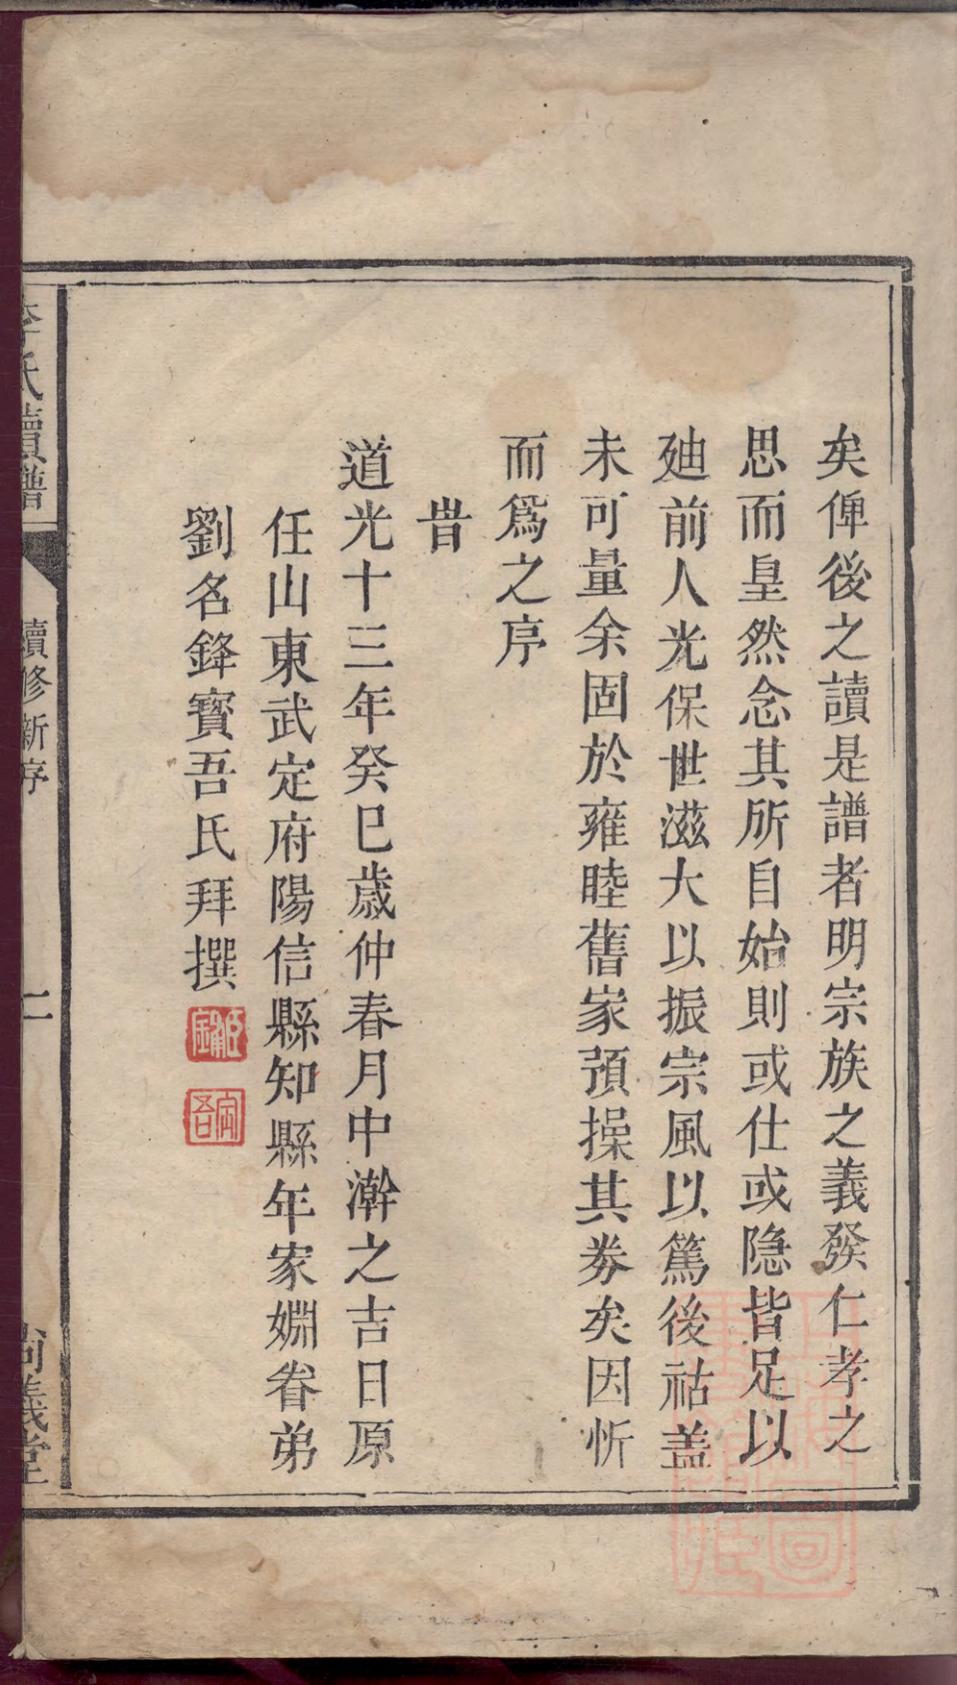 矣俾後之讀是譜者明宗族之義發仁孝之
思而皇然念其所自始則或仕或隐皆足以
廸前人光保世滋大以振宗風以篤後祜盖
未可量余固於雍睦舊家預操其劵矣因忻
而爲之序
昔
道光十三年癸巳歲仲春月中澣之吉日原
任山東武定府陽信縣知縣年家姻眷弟
劉名鋒寳吾氏拜撰
李氏續譜
續修新序
二
尚義堂